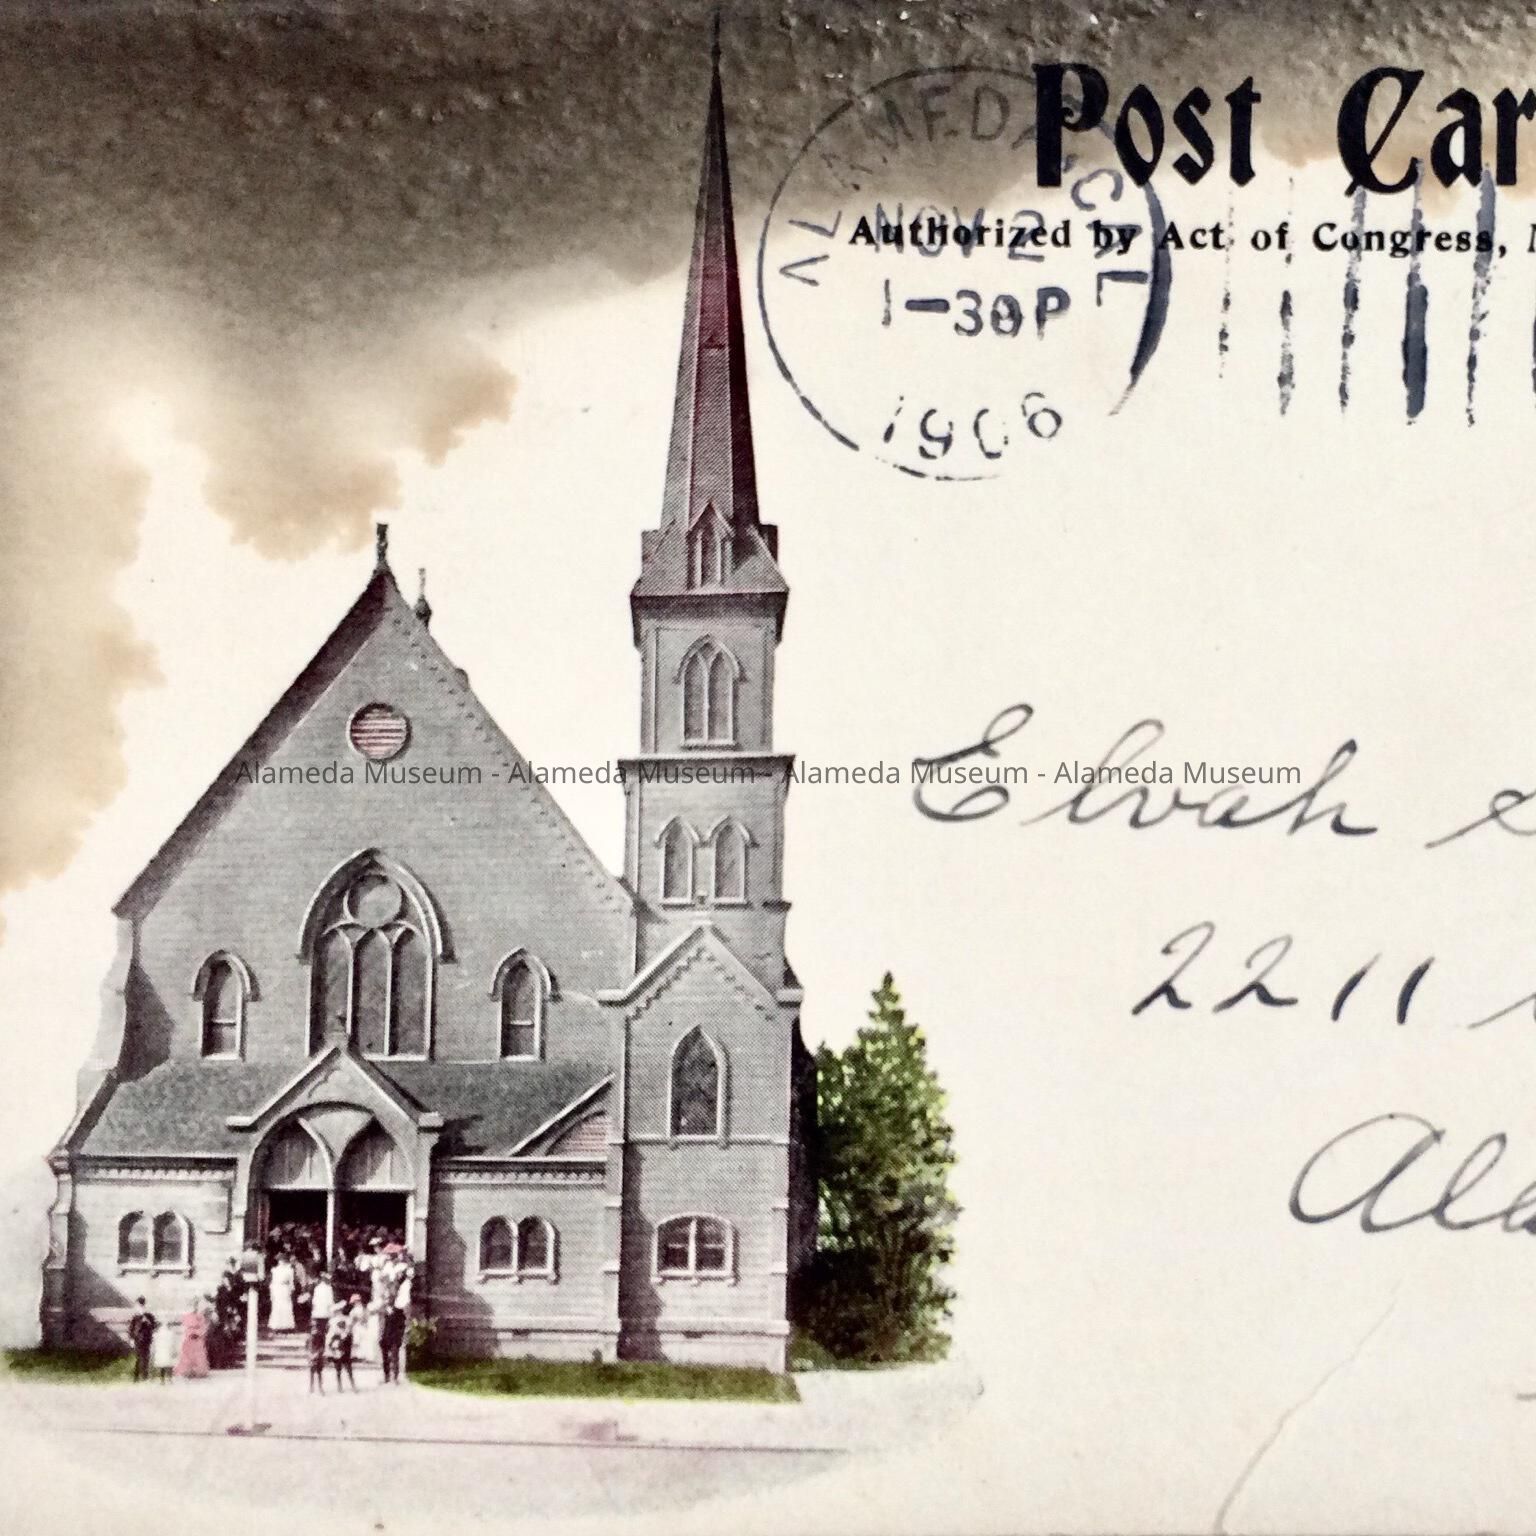 Post Car
ALAMEDA, CAL
NOV 2
Authorized by Act of Congress,
1-30P
1906
Alameda Museum - Alameda Museum - Alameda Museum - Alameda Museum
Elvah
2211
Ala